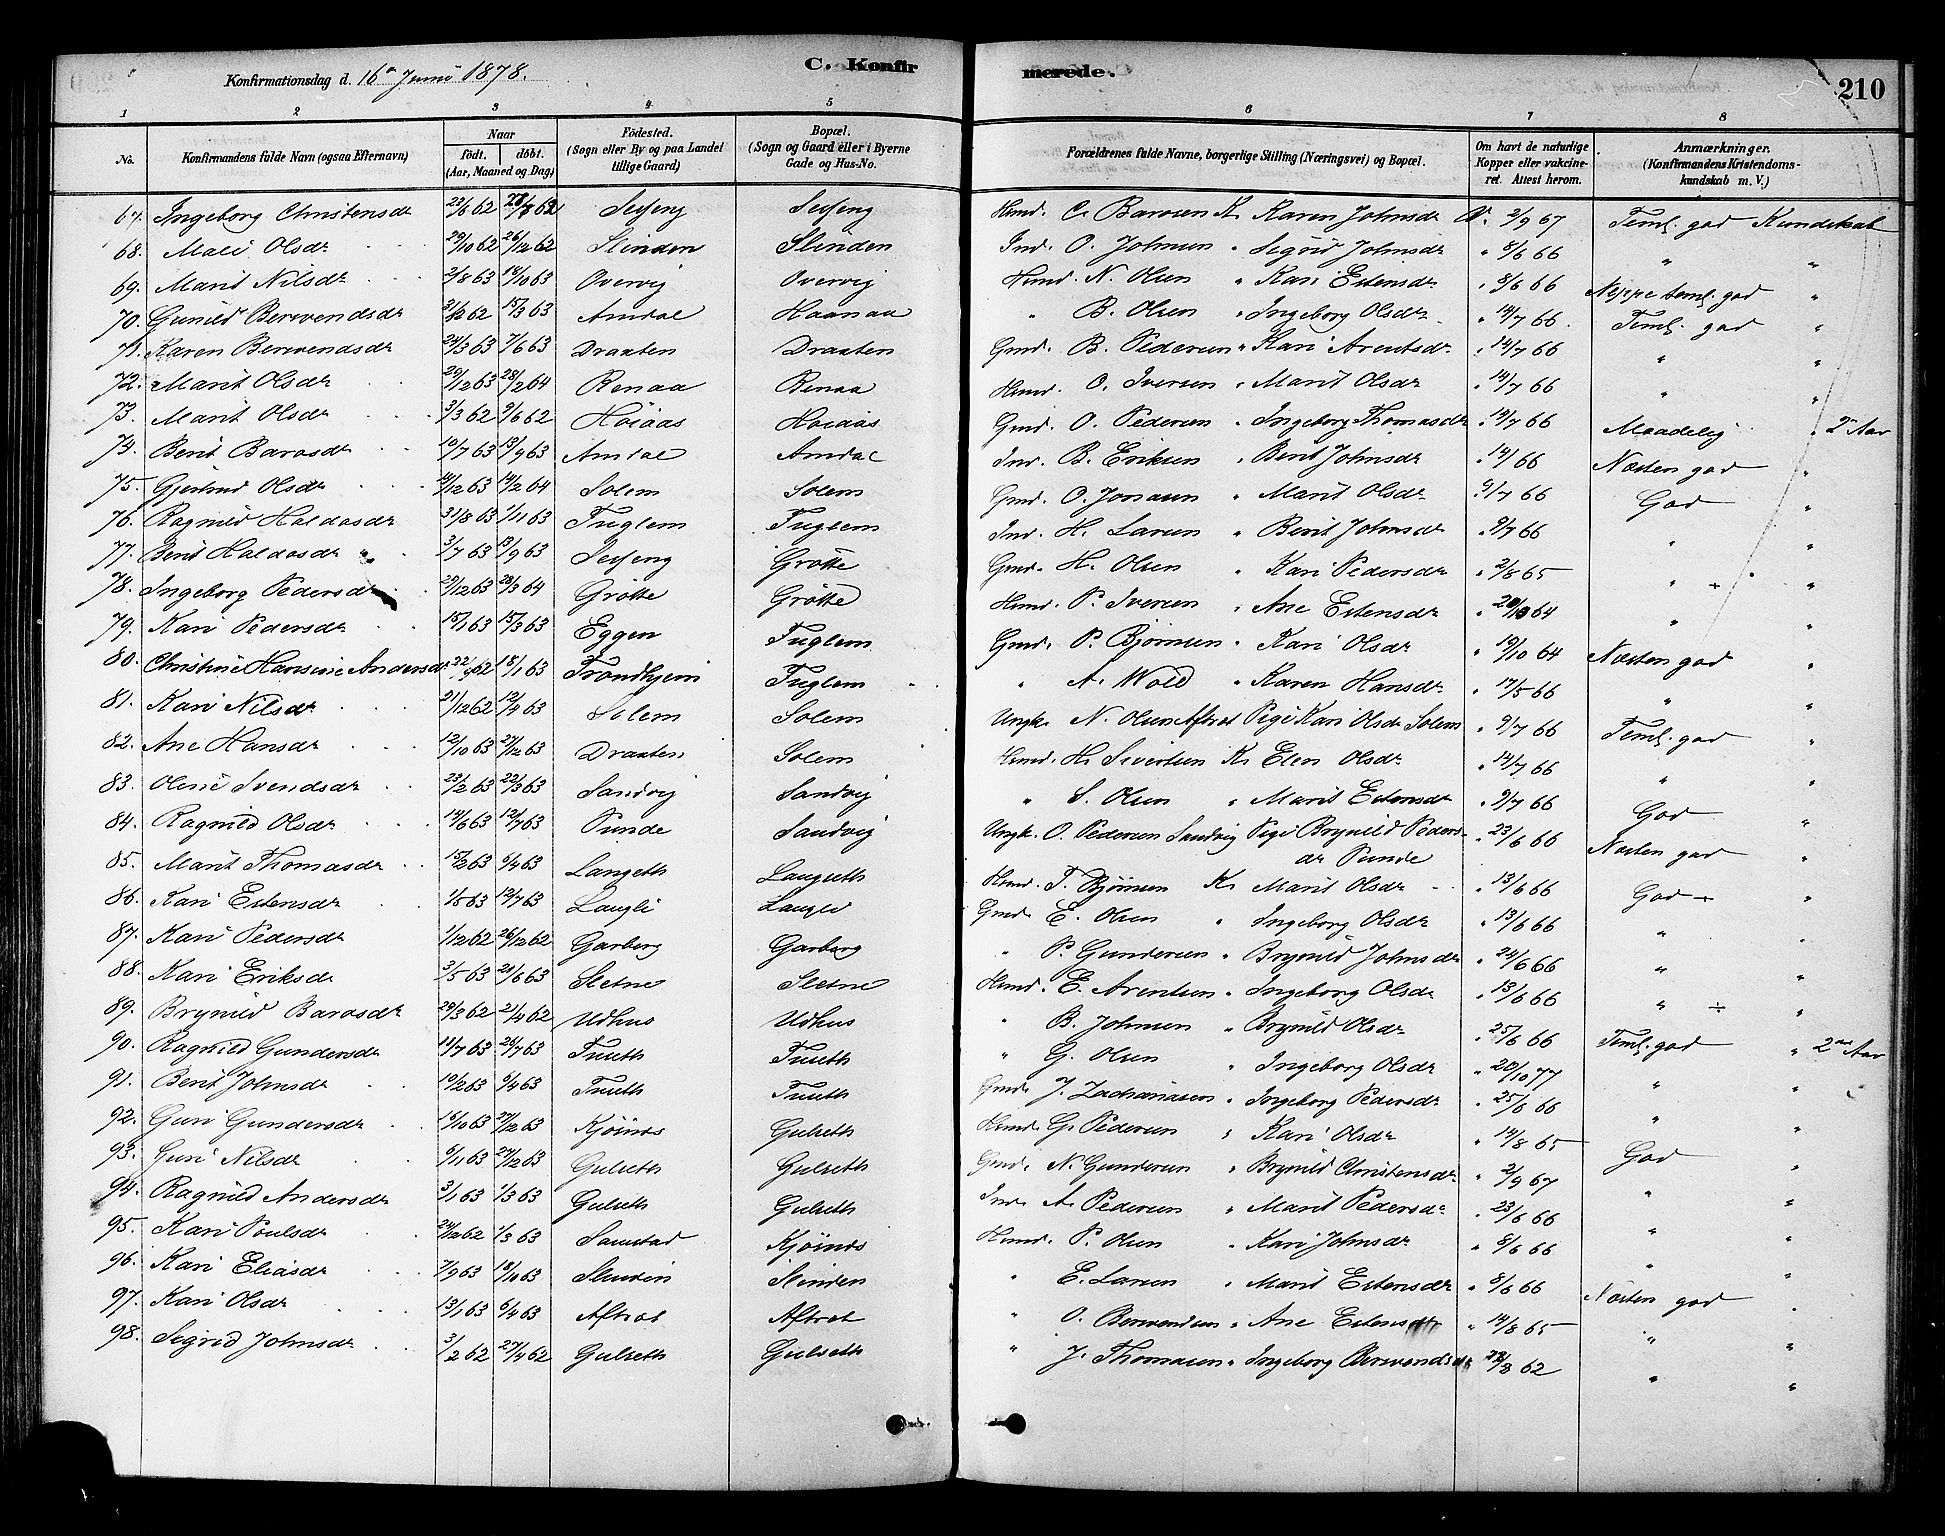 Konfirmationsdag d. 16de Juni 1878. C. Konfirmerede. 210
1 2 3 4 5 6 7 8
No. Konfirmandens fulde Navn (ogsaa Efternavn) Naar født. døbt. (Aar, Maaned og Dag) Fødested. (Sogn eller By og paa Landet tillige Gaard) Bopæl. (Sogn og Gaard eller i Byerne Gade og Hus-No. Forældrenes fulde Navne, borgerlige Stilling (Næringsvei) og Bopæl. Om havt de naturlige Kopper eller vakcineret. Attest herom. Anmærkninger. (Konfirmandens Kristendomskundskab m. V.)
67. Ingeborg Christensdr 23/6 62 Selseng Selseng Hmd. C. Barosen K. Karen Johnsdr V. 2/9 67 Teml. god Kundskab
68. Mali Olsdr 29/10 62 26/12 62 Slinden Slinden Ind. O. Johnsen " Sigrid Johnsdr " 8/6 66 " "
69. Marit Nilsdr 2/8 63 18/10 63 Overvig Overvig Hmd. N. Olsen " Kari Estensdr " 8/6 66 Neppe teml. god "
70. Gunild Berwendsdr 62 15/3 63 Amdal Haanaa " B. Olsen " Ingeborg Olsdr " 14/7 66 Teml. god "
71. Karen Berwendsdr 24/3 63 7/6 63 Draaten Draaten Gmd. B. Pedersen " Kari Arntsdr " 14/7 66 " "
72. Marit Olsdr 29/12 63 28/2 64 Renaa Renaa Hmd. O. Iversen " Marit Olsdr " 14/7 66 " "
73. Marit Olsdr 3/3 62 9/6 62 Høiaas Høiaas Gmd. O. Pedersen " Ingeborg Thomasdr " 14/7 66 Maadelig " 2 Aar
74. Berit Barosdr 10/7 63 13/9 63 Amdal Amdal Ind. B. Eriksen " Berit Johnsdr " 14/ 66 Næsten god "
75. Gjertrud Olsdr 14/12 63 14/2 64 Solem Solem Gmd. O. Jonasen " Marit Olsdr " 9/7 66 God "
76. Ragnild Haldosdr 31/8 63 1/11 63 Fuglem Fuglem Ind. H. Larsen " Berit Johnsdr " 9/7 66 " "
77. Berit Haldosdr 3/7 63 13/9 63 Selseng Grøtte Gmd. H. Olsen " Kari Pedersdr " 2/8 65 " ÷ "
78. Ingeborg Pedersdr 29/12 63 28/3 64 Grøtte Grøtte Hmd. P. Iversen " Ane Estensdr " 64 " "
79. Kari Pedersdr 15/1 63 15/3 63 Eggen Fuglem Gmd. P. Bjørnsen " Kari Olsdr " 19/10 64 Næsten god "
80. Christine Hansine Andersdr 22/9 62 18/1 63 Trondhjem Fuglem " A. Wold " Karen Hansdr " 17/5 66 " "
81. Kari Nilsdr 21/12 62 12/4 63 Solem Solem Ungk. N. Olsen Aftret Pige Kari Olsdr Solem " 9/7 66 Teml. god "
82. Ane Hansdr 12/10 63 27/12 63 Draaten Solem Hmd. H. Sivertsen K. Elen Olsdr " 14/7 66 " "
83. Oline Svendsdr 23/2 63 22/3 63 Sandvig Sandvig " S. Olsen " Marit Estensdr " 9/7 66 God "
84. Ragnild Olsdr 14/6 63 12/7 63 Punde Sandvig Ungk. O. Pedersen Sandvig Pige Brynild Pedersdr Punde " 23/6 66 Næsten god "
85. Marit Thomasdr 15/2 63 6/4 63 Langseth Langseth Hmd. T. Bjørnsen K. Marit Olsdr " 13/6 66 God ÷ "
86. Kari Estensdr 1/5 63 12/7 63 Langli Langli Gmd. E. Olsen " Ingeborg Olsdr " 13/6 66 " "
87. Kari Pedersdr 1/12 62 26/12 62 Garberg Garberg " P. Gundersen " Brynild Johnsdr " 66 " "
88. Kari Eriksdr 3/5 63 21/6 63 Sletne Sletne Hmd. E. Arentsen " Ingeborg Olsdr " 13/6 66 " ÷ "
89. Brynild Barosdr 28/3 62 21/4 62 Udhus Udhus " B. Johnsen " Brynild Olsdr " 25/6 66 Teml. god " 2 Aar
90. Ragnild Gundersdr 11/7 63 26/7 63 Tuseth Tuseth " G. Olsen " Ingeborg Olsdr " 20/10 77 " "
91. Berit Johnsdr 19/2 63 6/4 63 Tuseth Tuseth Gmd. J. Zachariasen " Ingeborg Pedersdr " 25/6 66 " "
92. Guri Gundersdr 16/10 63 27/12 63 Kjøsnes Gulseth Hmd. G. Pedersen " Kari Olsdr " 14/8 65 God "
93. Guri Nilsdr 6/11 63 27/12 63 Gulseth Gulseth Gmd. N. Gundersen " Brynild Christensdr " 2/9 67 " "
94. Ragnild Andersdr 3/1 63 1/3 63 Gulseth Gulseth Ind. A. Pedersen " Marit Pedersdr " 23/6 66 " "
95. Kari Poulsdr 24/12 62 1/3 63 Samstad Kjøsnes Hmd. P. Olsen " Kari Johnsdr " 8/6 66 " "
96. Kari Eliasdr 7/9 63 18/10 63 Slinden Slinden " E. Larsen " Marit Estensdr " 8/6 66 Næsten god "
97. Kari Olsdr 13/1 63 6/4 63 Aftret Aftret " O. Berwendsen " Ane Estensdr " 14/8 65 " "
98. Sigrid Johnsdr 3/2 62 27/4 62 Gulseth Gulseth " J. Thomasen " Ingeborg Berwendsdr 62 " "